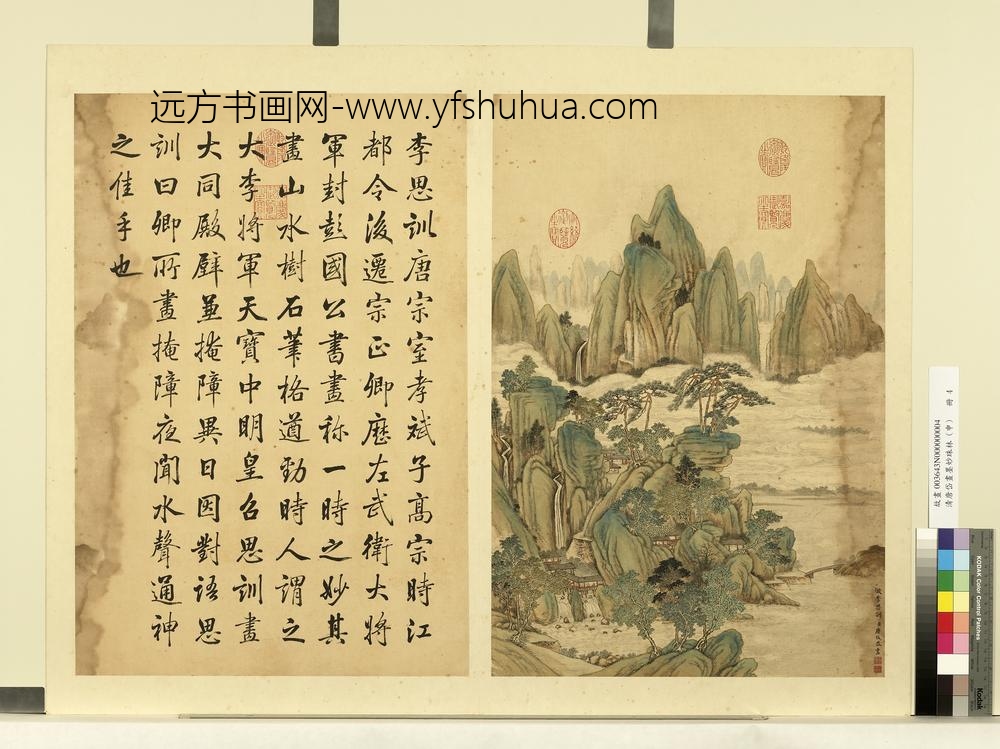 远方书画网-www.yfshuhua.com
李思訓唐宗室孝斌子高宗時江
都令後遷宗正卿歷左武衛大將
軍封彭國公書畫称一時之妙其
畫山水樹石筆格遒勁時人謂之
大李將軍天寶中明皇召思訓畫
大同殿壁兼掩障異日因對語思
訓曰卿所畫掩障夜聞水聲通神
之佳手也
故畫003643N000000004
清唐岱畫墨妙珠林(申) 冊 4
KODAK Color Control Patches
Kodak